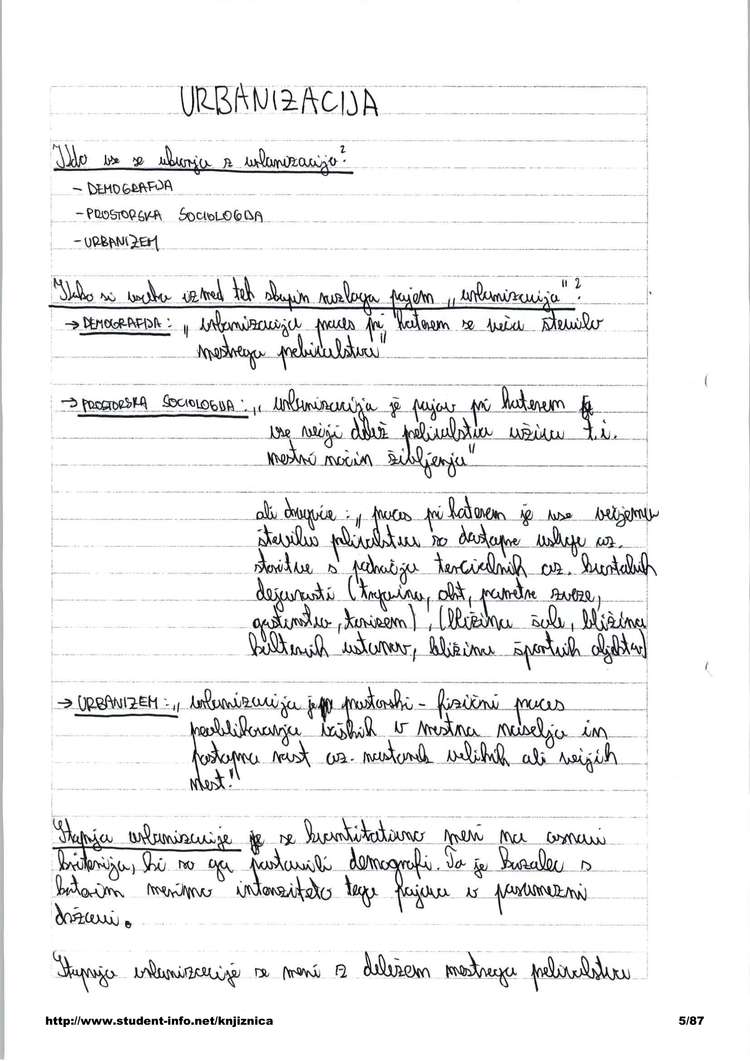 URBANIZACIJA
Kdo vse se ukvarja z urbanizacijo?
- DEMOGRAFIJA
- PROSTORSKA SOCIOLOGIJA
- URBANIZEM
Kako si vsaka izmed teh skupin razlaga pojem „urbanizacija"?
→ DEMOGRAFIJA: „urbanizacija proces pri katerem se veča število
mestnega prebivalstva"
→ PROSTORSKA SOCIOLOGIJA: „urbanizacija je pojav pri katerem
vse večji delež prebivalstva uživa t.i.
mestni način življenja"
ali drugače: „proces pri katerem je vse večjemu
številu prebivalstva so dostopne usluge oz.
storitve s področja terciarnih oz. kvartalnih
dejavnosti (trgovina, obrt, prometne zveze,
gostinstvo, turizem), (bližina šole, bližina
kulturnih ustanov, bližina športnih objektov)
→ URBANIZEM: „urbanizacija je prostorski - fizični proces
preoblikovanja vaških v mestna naselja in
postopna rast oz. nastanek velikih ali večjih
mest."
Stopnja urbanizacije se kvantitativno meri na osnovi
kriterija, ki so ga postavili demografi. To je kazalec s
katerim merimo intenziteto tega pojava v posamezni
državi.
Stopnja urbanizacije se meri z deležem mestnega prebivalstva
http://www.student-info.net/knjiznica
5/87